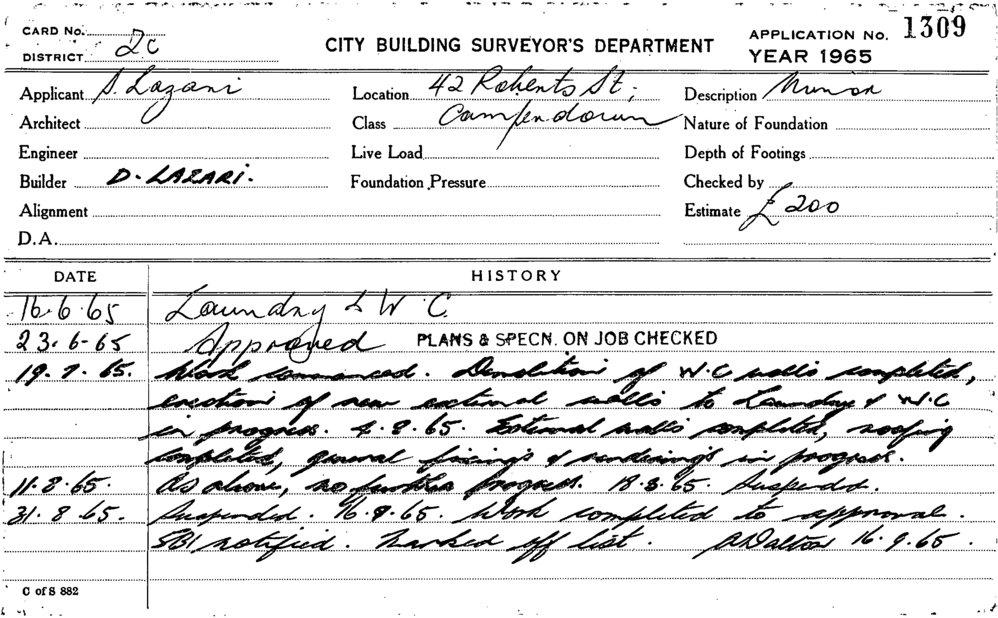 CARD No.
DISTRICT 2c
CITY BUILDING SURVEYOR'S DEPARTMENT
APPLICATION No. 1309
YEAR 1965
Applicant S. Lazari
Location 42 Roberts St;
Description Minor
Architect
Class Camperdown
Nature of Foundation
Engineer
Live Load
Depth of Footings
Builder D. LAZARI.
Foundation Pressure
Checked by
Alignment
Estimate £ 200
D.A.
DATE HISTORY
16.6.65 Laundry & W C.
23.6-65 Approved PLANS & SPECN. ON JOB CHECKED
19.7.65. Work commenced. Demolition of W.C walls completed,
erection of new external walls to Laundry & W.C
in progress. 4.8.65. External walls completed, roofing
completed, general fixings & renderings in progress.
11.8.65. As above, no further progress. 18.8.65. Suspended.
31.8.65. Suspended. 16.9.65. Work completed to approval.
SBI notified. Marked off list. 16.9.65.
C of S 882